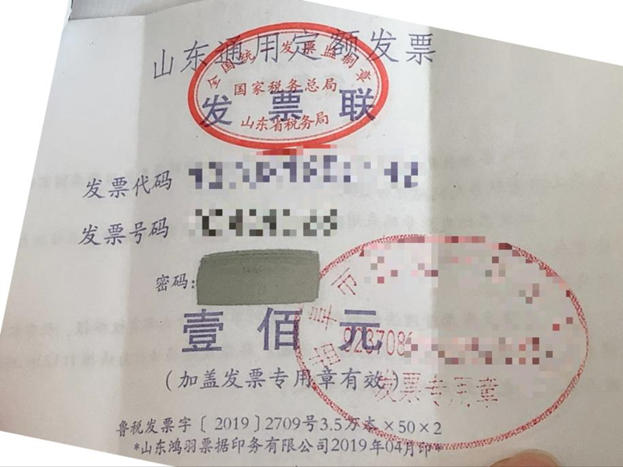 山东通用定额发票
全国统一发票监制章
国家税务总局
发票联
山东省税务局
发票代码
发票号码
密码:
壹佰元
(加盖发票专用章有效)
发票专用章
鲁税发票字〔2019〕2709号3.5万本×50×2
*山东鸿羽票据印务有限公司2019年04月印*